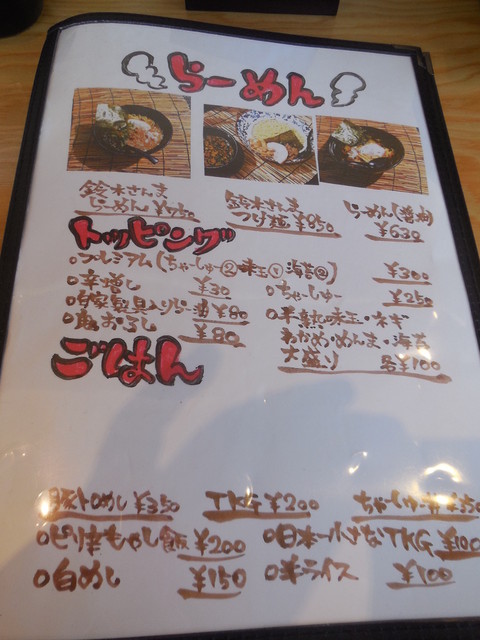 らーめん
鈴木さんま
らーめん ¥750
鈴木さんま
つけ麺 ¥850
らーめん(醤油)
¥630
トッピング
○プレミアム(ちゃーしゅー②味玉①海苔②) ¥300
○辛増し ¥30
○ちゃーしゅー ¥250
○自家製具入りらー油 ¥80
○鬼おろし ¥80
○半熟味玉・ネギ
わかめ・めんま・海苔
大盛り 各¥100
ごはん
豚トロめし ¥350
TKG ¥200
ちゃーしゅー丼
○ピリ辛もやし飯 ¥200
○日本一小さなTKG ¥100
○白めし ¥150
○半ライス ¥100